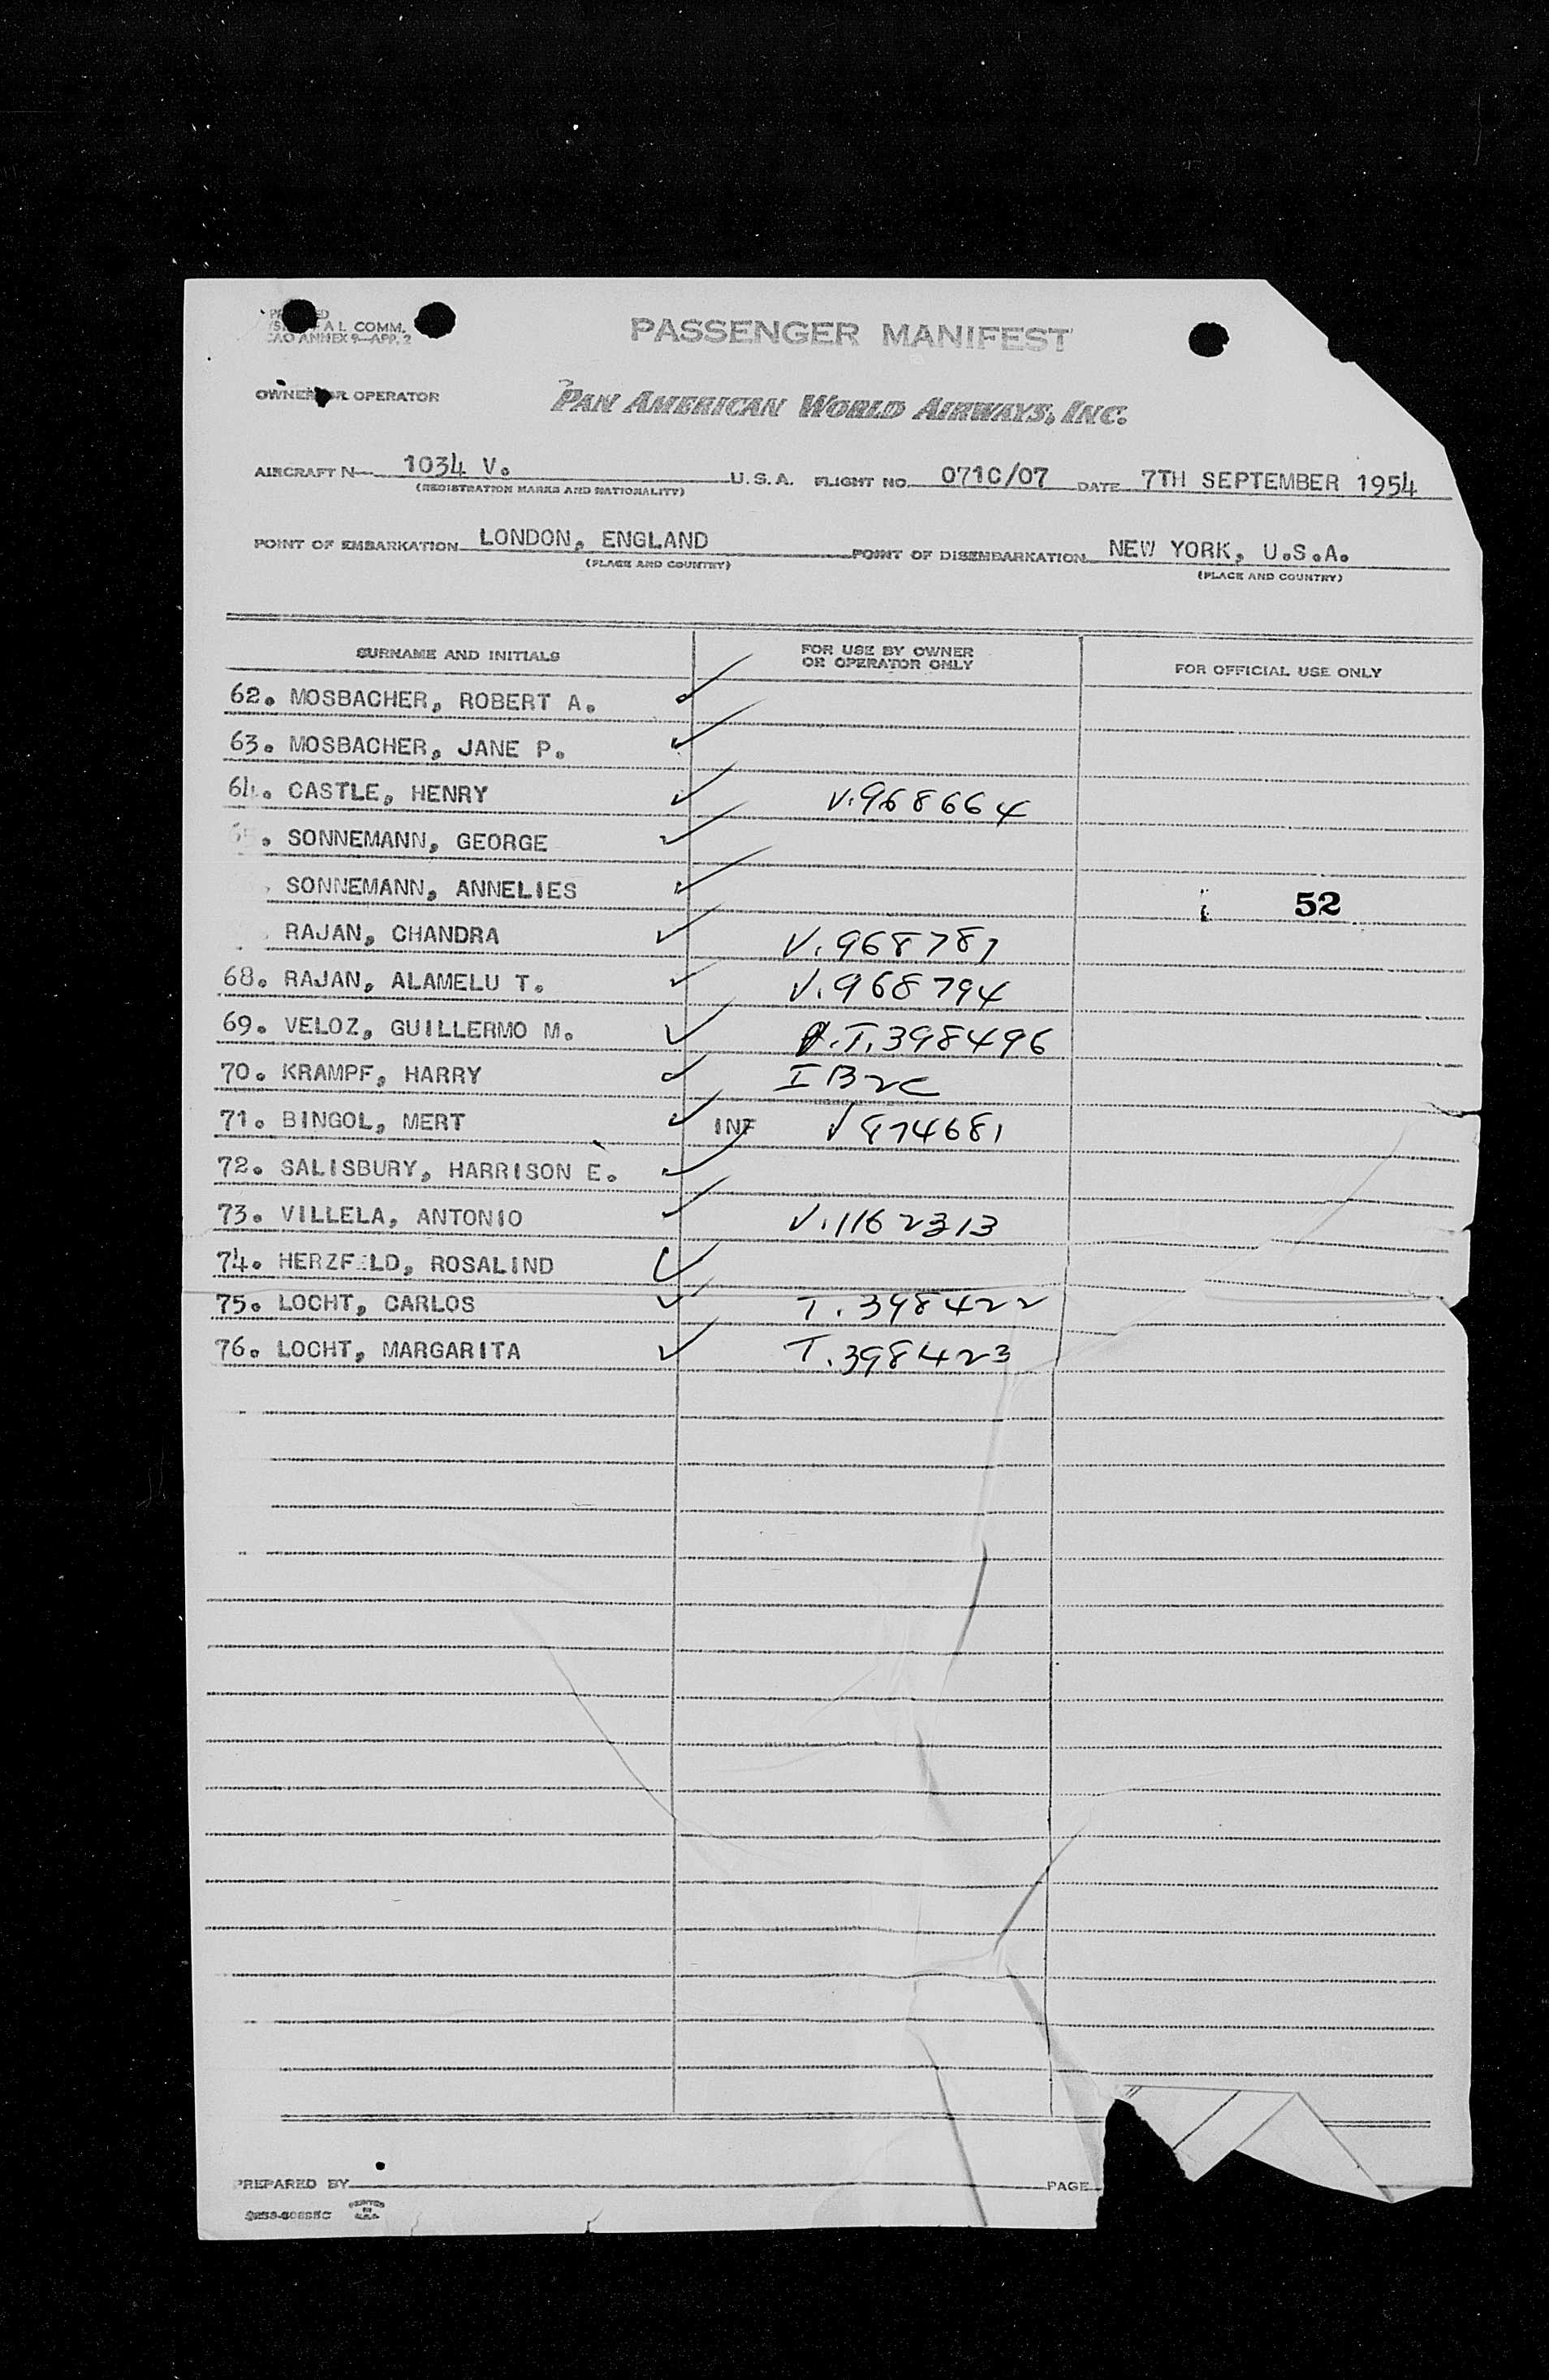 COMM.
ANNEX 9—APP. 2
PASSENGER MANIFEST
OWNER OR OPERATOR
PAN AMERICAN WORLD AIRWAYS, INC.
AIRCRAFT N— 1034 V. U.S.A. FLIGHT NO. 071C/07 DATE 7TH SEPTEMBER 1954
(REGISTRATION MARKS AND NATIONALITY)
POINT OF EMBARKATION LONDON, ENGLAND POINT OF DISEMBARKATION NEW YORK, U.S.A.
(PLACE AND COUNTRY) (PLACE AND COUNTRY)
SURNAME AND INITIALS FOR USE BY OWNER OR OPERATOR ONLY FOR OFFICIAL USE ONLY
62. MOSBACHER, ROBERT A.
63. MOSBACHER, JANE P.
64. CASTLE, HENRY V.968664
65. SONNEMANN, GEORGE
SONNEMANN, ANNELIES 52
RAJAN, CHANDRA V.968787
68. RAJAN, ALAMELU T. V.968794
69. VELOZ, GUILLERMO M. T.398496
70. KRAMPF, HARRY IB2C
71. BINGOL, MERT INF V974681
72. SALISBURY, HARRISON E.
73. VILLELA, ANTONIO V.1162313
74. HERZF LD, ROSALIND
75. LOCHT, CARLOS T.398422
76. LOCHT, MARGARITA T.398423
PREPARED BY PAGE
PRINTED IN U.S.A.